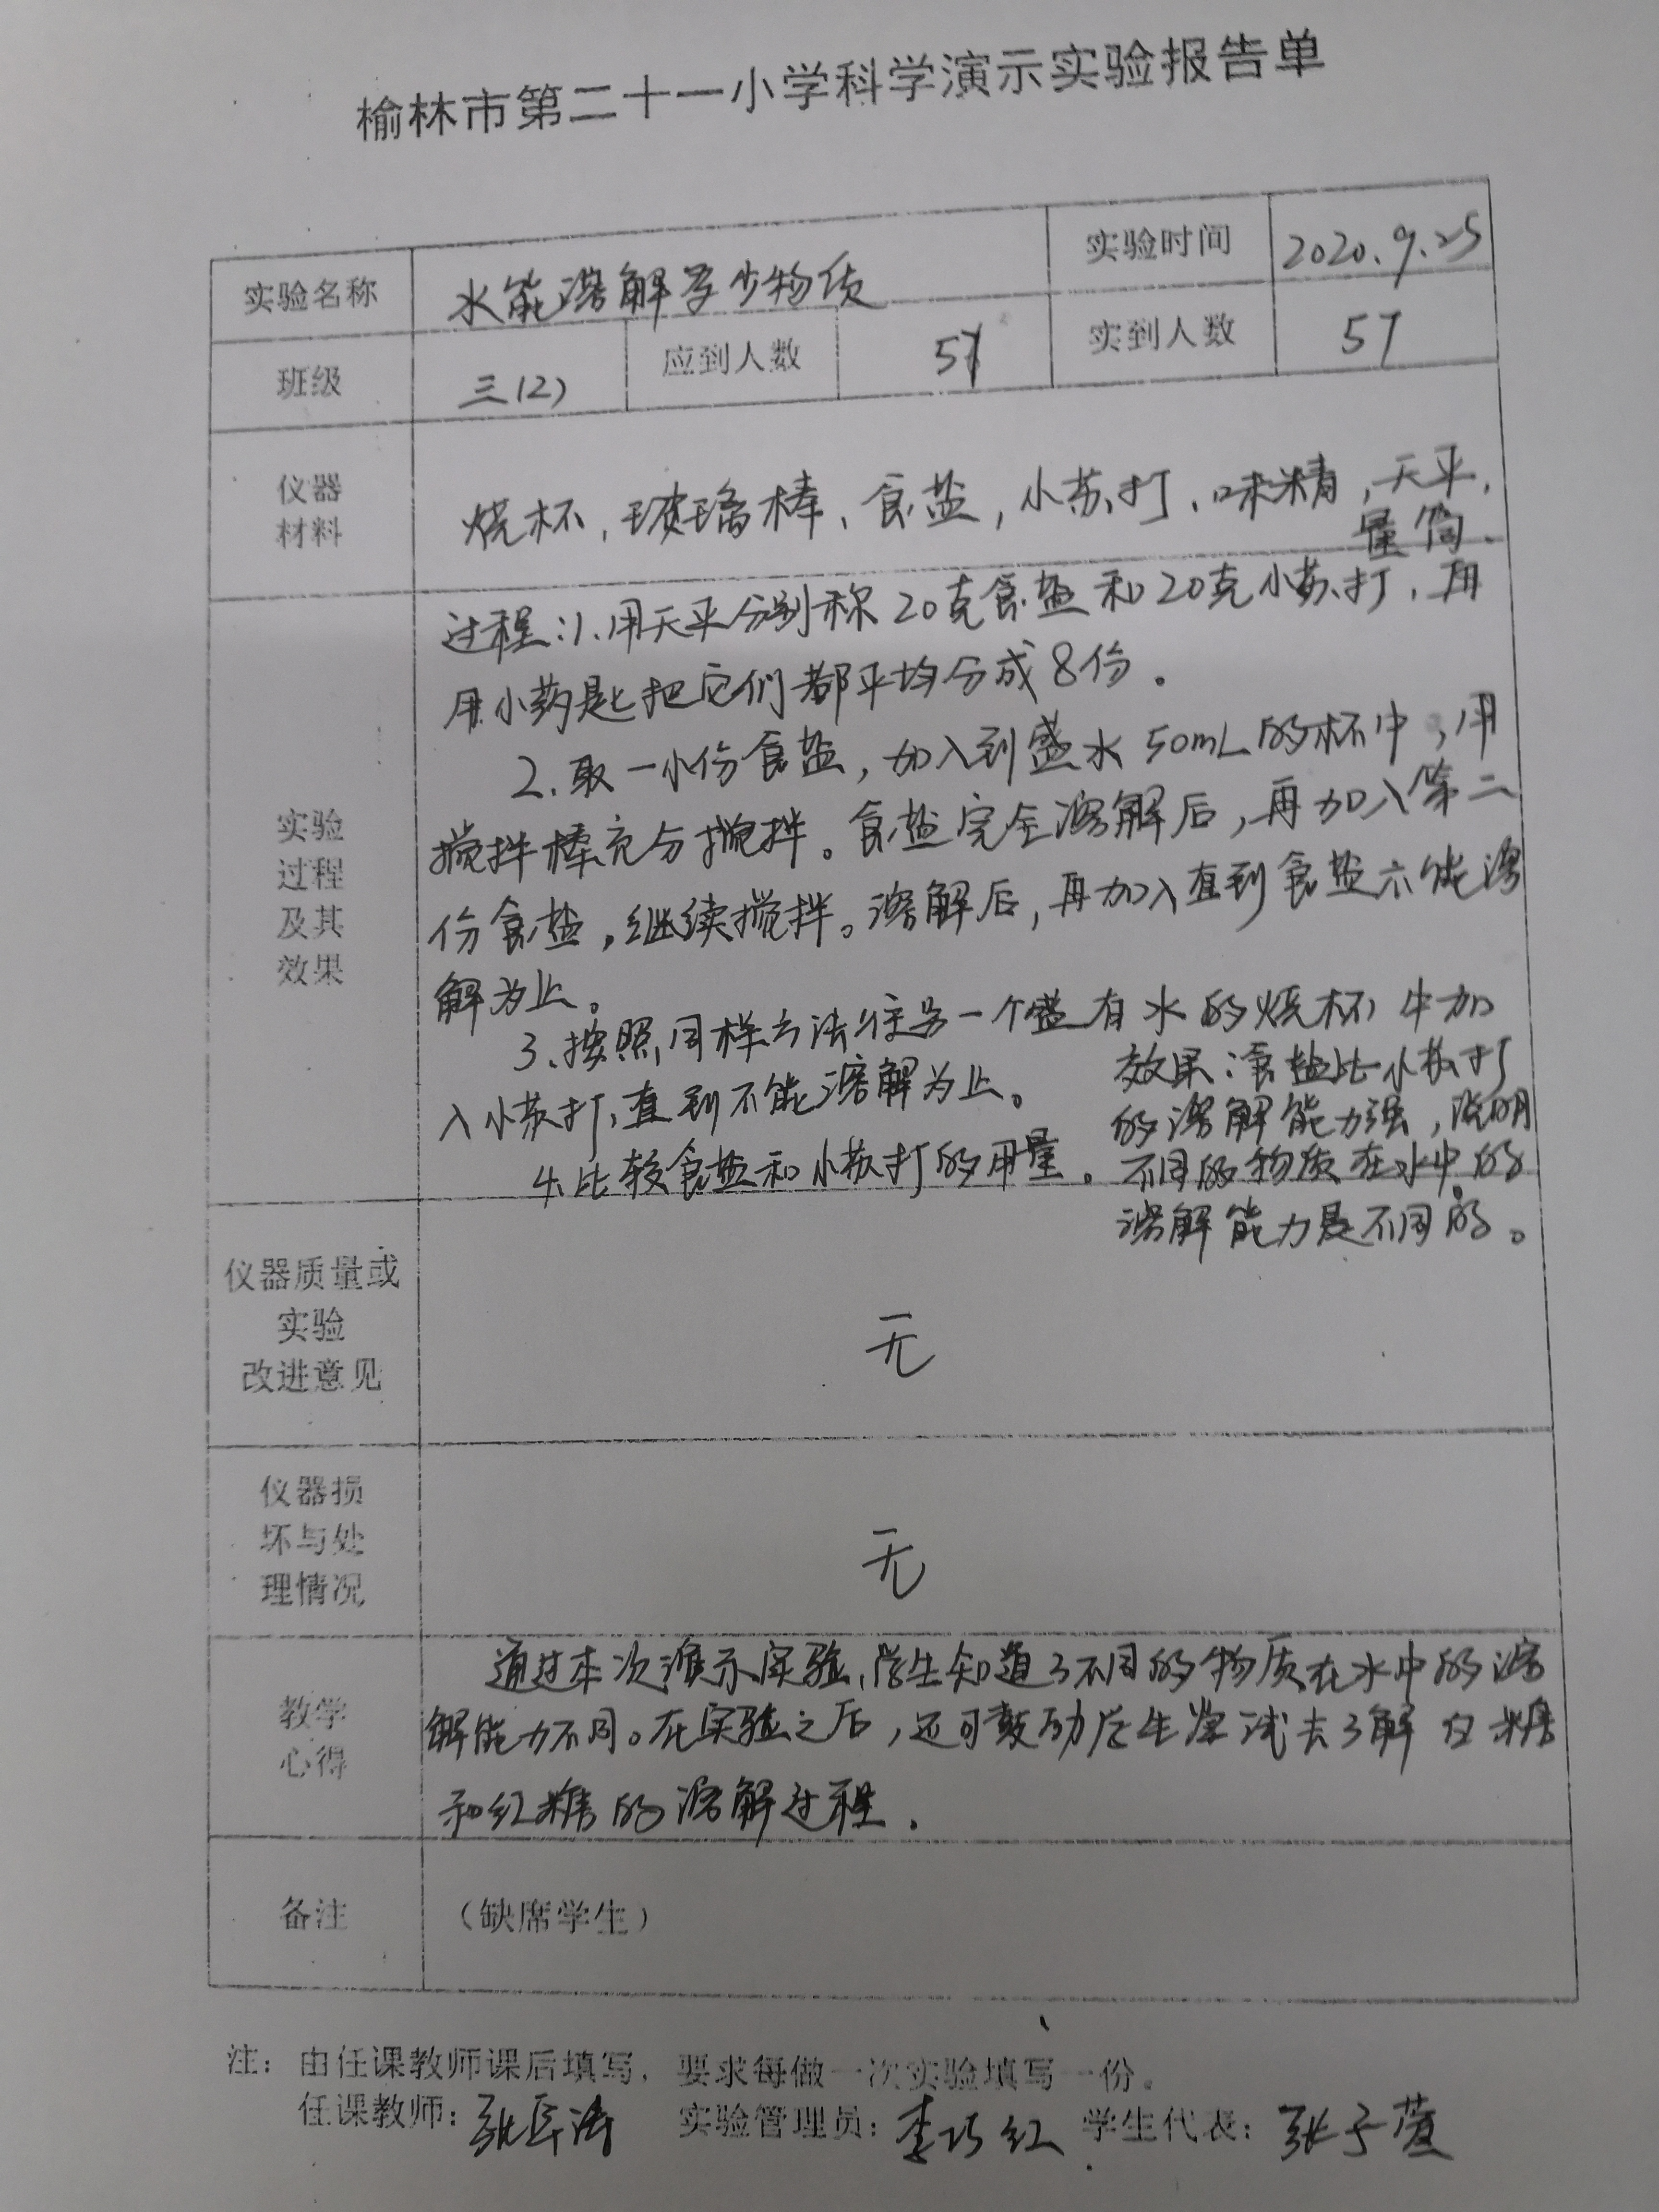 榆林市第二十一小学科学演示实验报告单
实验名称 水能溶解多少物质 实验时间 2020.9.25
班级 三(2) 应到人数 57 实到人数 57
仪器
材料
烧杯,玻璃棒、食盐,小苏打、味精,天平,
量筒.
实验
过程
及其
效果
过程:1.用天平分别称20克食盐和20克小苏打,再
用小药匙把它们都平均分成8份.
2.取一小份食盐,加入到盛水50mL的杯中,用
搅拌棒充分搅拌。食盐完全溶解后,再加入第二
份食盐,继续搅拌。溶解后,再加入直到食盐不能溶
解为止。
3.按照同样方法往另一个盛有水的烧杯中加
入小苏打,直到不能溶解为止。
4.比较食盐和小苏打的用量.
效果:食盐比小苏打
的溶解能力强,说明
不同的物质在水中的
溶解能力是不同的。
仪器质量或
实验
改进意见
无
仪器损
坏与处
理情况
无
教学
心得
通过本次演示实验,学生知道了不同的物质在水中的溶
解能力不同。在实验之后,还可鼓励学生尝试去了解白糖
和红糖的溶解过程.
备注 (缺席学生)
注:由任课教师课后填写,要求每做一次实验填写一份。
任课教师: 实验管理员:李巧红 学生代表:张子萱